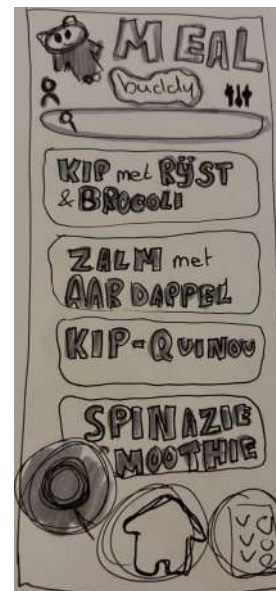 MEAL
buddy
KIP met RIJST
& BROCOLI
ZALM met
AARDAPPEL
KIP-QUINOU
SPINAZIE
SMOOTHIE